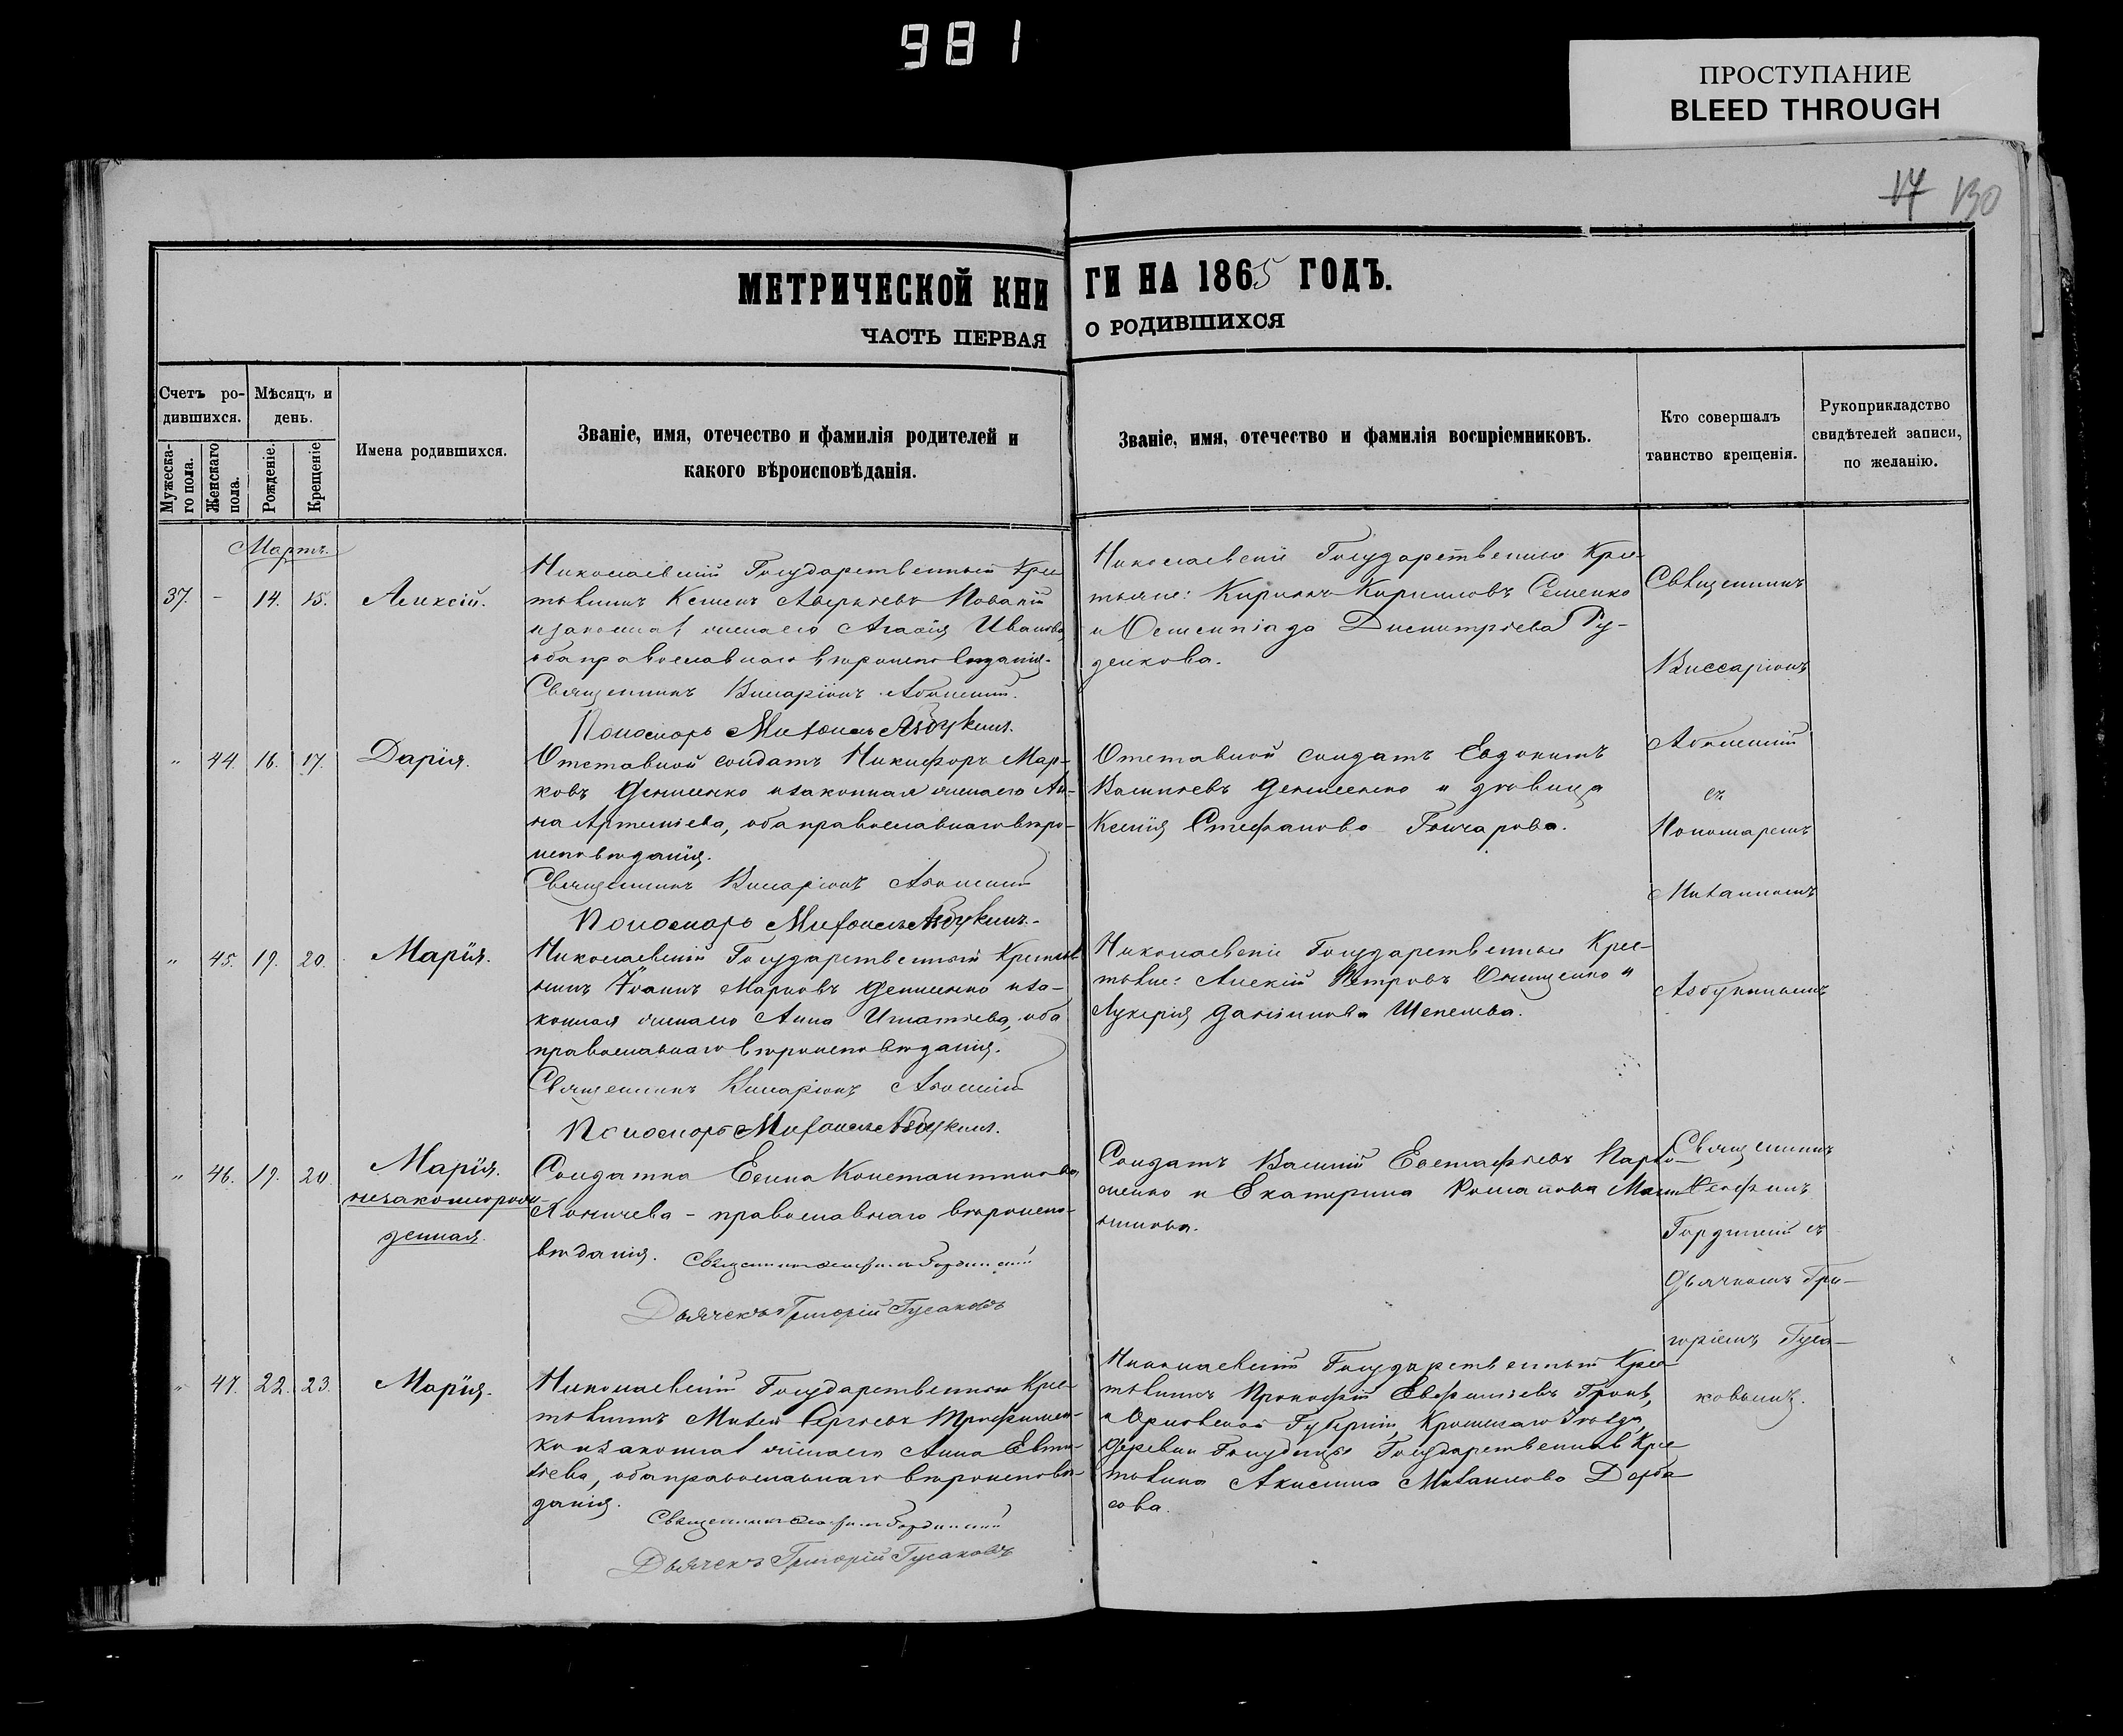 981
ПРОСТУПАНИЕ
BLEED THROUGH
17 130
МЕТРИЧЕСКОЙ КНИ ГИ НА 1865 ГОДЪ.
ЧАСТЬ ПЕРВАЯ О РОДИВШИХСЯ
Счетъ ро-
дившихся.
Мѣсяцъ и
день.
Мужеска-
го пола.
Женскаго
пола.
Рожденіе.
Крещеніе
Имена родившихся.
Званіе, имя, отечество и фамилія родителей и
какого вѣроисповѣданія.
Званіе, имя, отечество и фамилія воспріемниковъ.
Кто совершалъ
таинство крещенія.
Рукоприкладство
свидѣтелей записи,
по желанію.
Мартъ.
37. - 14. 15. Алексій.
Николаевскій Государственный Крес
тьянинъ Аверьяевъ
и законная жена его Агафія Иванова,
оба православнаго вѣроисповѣданія.
Священникъ Виссаріонъ
Пономарь Михаилъ Азбукинъ.
Николаевскіе Государственные Крес
тьяне: Кирилъ Кирилловъ Семенко
и Димитріева Гу-
денкова.
Священникъ
Виссаріонъ
съ
Пономаремъ
Михаиломъ
Азбукинымъ
" 44. 16. 17. Дарія.
Отставной солдатъ Никифоръ Мар-
ковъ и законная жена его Ан-
на Артемьева, оба православнаго вѣро-
исповѣданія.
Священникъ Виссаріонъ
Пономарь Михаилъ Азбукинъ.
Отставной солдатъ Евдокимъ
Васильевъ и дѣвица
Ксенія Стефанова Гончарова.
" 45. 19. 20. Марія.
Николаевскій Государственный Крестья
нинъ Іоаннъ Марковъ и за-
конная жена его Анна Игнатьева, оба
православнаго вѣроисповѣданія.
Священникъ Виссаріонъ
Пономарь Михаилъ Азбукинъ.
Николаевскіе Государственные Крес-
тьяне: Алексій Петровъ Онищенко и
Лукерія Даніилова Шепелева.
" 46. 19. 20. Марія.
незаконнорож-
денная.
Солдатка Елена Константинова
- православнаго вѣроиспо-
вѣданія. Священникъ
Дьячекъ Григорій Гусаковъ
Солдатъ Василій Евстафьевъ Пархо-
менко и Екатерина Романова
Священникъ
Гординскій съ
Дьячкомъ Гри-
горіемъ Гуса-
ковымъ.
" 47. 22. 23. Марія.
Николаевскій Государственный Крес-
тьянинъ Михей Сергѣевъ Трофимен-
ко и законная жена его Анна
оба православнаго вѣроисповѣ-
данія.
Священникъ
Дьячекъ Григорій Гусаковъ
Николаевскій Государственный Крес
тьянинъ Прокофій
и Орловской Губерніи, Кромскаго Уѣзда,
Деревни Государственная Крес
тьянка Акилина Михаилова
сова.